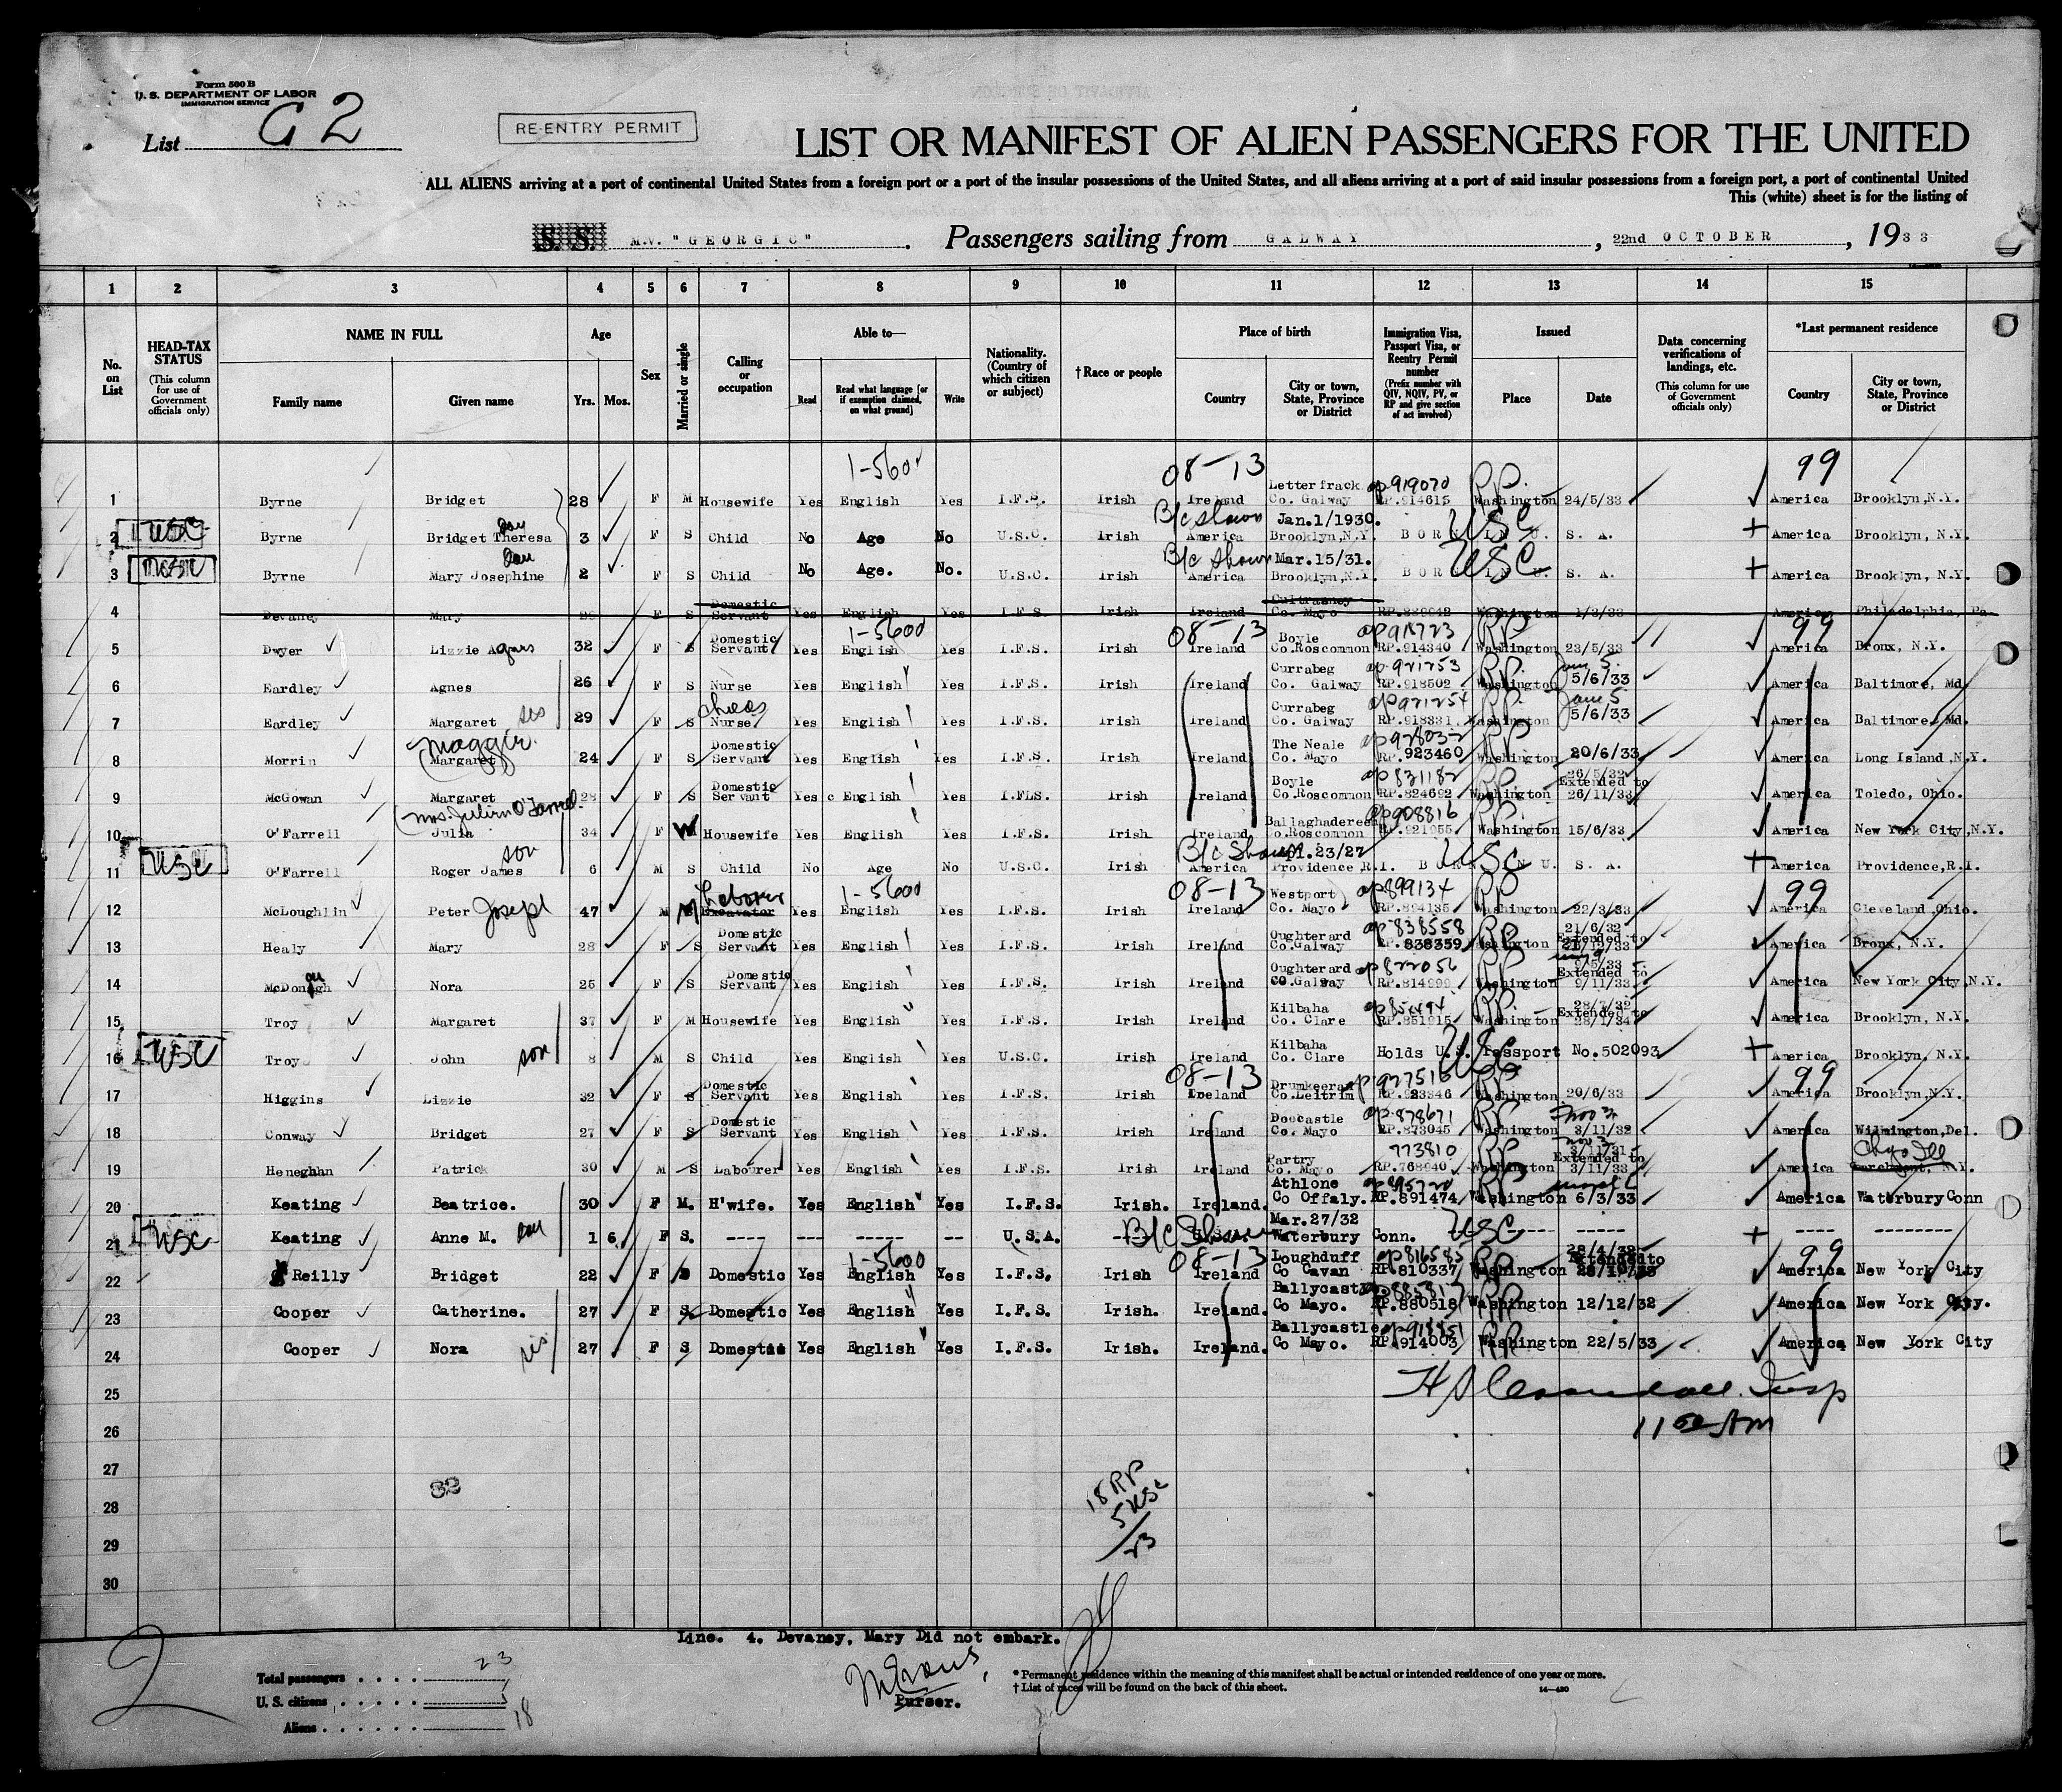 Form 500 B
U. S. DEPARTMENT OF LABOR
IMMIGRATION SERVICE
List G 2
RE-ENTRY PERMIT
LIST OR MANIFEST OF ALIEN PASSENGERS FOR THE UNITED
ALL ALIENS arriving at a port of continental United States from a foreign port or a port of the insular possessions of the United States, and all aliens arriving at a port of said insular possessions from a foreign port, a port of continental United
This (white) sheet is for the listing of
S. S. M.V. "GEORGIC". Passengers sailing from GALWAY, 22nd OCTOBER, 1933
1 2 3 4 5 6 7 8 9 10 11 12 13 14 15
No. on List
HEAD-TAX STATUS
(This column for use of Government officials only)
NAME IN FULL
Family name Given name
Age
Yrs. Mos.
Sex
Married or single
Calling or occupation
Able to—
Read Read what language [or if exemption claimed, on what ground] Write
Nationality. (Country of which citizen or subject)
†Race or people
Place of birth
Country City or town, State, Province or District
Immigration Visa, Passport Visa, or Reentry Permit number
(Prefix number with QIV, NQIV, PV, or RP and give section of act involved)
Issued
Place Date
Data concerning verifications of landings, etc.
(This column for use of Government officials only)
*Last permanent residence
Country City or town, State, Province or District
1-5600 08-13 99
1 Byrne Bridget 28 F M Housewife Yes English Yes I.F.S. Irish Ireland Letterfrack Co. Galway op919070 RP.914615 RP Washington 24/5/33 America Brooklyn, N.Y.
2 USC Byrne Bridget Theresa dau 3 F S Child No Age No U.S.C. Irish B/c Shown America Jan.1/1930. Brooklyn, N.Y. BORN IN U. S. A. USC America Brooklyn, N.Y.
3 Byrne Mary Josephine dau 2 F S Child No Age. No. U.S.C. Irish B/c Shown America Mar.15/31. Brooklyn, N.Y. BORN IN U. S. A. USC America Brooklyn, N.Y.
4 Devaney Mary F S Domestic Servant Yes English Yes I.F.S. Irish Ireland Co. Mayo Washington 1/3/33 America Philadelphia, Pa
1-5600 08-13 99
5 Dwyer Lizzie Agnes 32 F S Domestic Servant Yes English Yes I.F.S. Irish Ireland Boyle Co.Roscommon op918723 RP.914340 RP Washington 23/5/33 America Bronx, N.Y.
6 Eardley Agnes 26 F S Nurse Yes English Yes I.F.S. Irish Ireland Currabeg Co. Galway op921253 RP.918502 RP Washington June 5 5/6/33 America Baltimore, Md.
7 Eardley Margaret sis 29 F S Nurse Yes English Yes I.F.S. Irish Ireland Currabeg Co. Galway op921254 RP.918331 RP Washington June 5 5/6/33 America Baltimore, Md.
8 Morrin Margaret (Maggie) 24 F S Domestic Servant Yes English Yes I.F.S. Irish Ireland The Neale Co. Mayo op928032 RP.923460 RP Washington 20/6/33 America Long Island, N.Y.
9 McGowan Margaret 28 F S Domestic Servant Yes English Yes I.FLS. Irish Ireland Boyle Co.Roscommon op831182 RP.824692 RP Washington 26/5/32 Extended to 26/11/33 America Toledo, Ohio.
10 O'Farrell Julia 34 F M Housewife Yes English Yes I.F.S. Irish Ireland Ballaghadereen Co.Roscommon op908816 RP.921955 Washington 15/6/33 America New York City, N.Y.
11 USC O'Farrell Roger James son 6 M S Child No Age No U.S.C. Irish B/c Shown America 23/27 Providence, R.I. BORN IN U. S. A. USC America Providence, R.I.
1-5600 08-13 99
12 McLoughlin Peter Joseph 47 M M Laborer Excavator Yes English Yes I.F.S. Irish Ireland Westport Co. Mayo op899134 RP.894135 RP Washington 22/3/33 America Cleveland, Ohio.
13 Healy Mary 28 F S Domestic Servant Yes English Yes I.F.S. Irish Ireland Oughterard Co.Galway op838558 RP.838359 RP Washington 21/6/32 Extended to 21/12/33 America Bronx, N.Y.
14 McDonagh Nora 25 F S Domestic Servant Yes English Yes I.F.S. Irish Ireland Oughterard CO.Galway op822056 RP.814999 RP Washington 9/5/33 Extended to 9/11/33 America New York City, N.Y.
15 Troy Margaret 37 F M Housewife Yes English Yes I.F.S. Irish Ireland Kilbaha Co. Clare RP.851915 RP Washington 28/7/32 Extended to 28/1/34 America Brooklyn, N.Y.
16 USC Troy John son 8 M S Child Yes English Yes U.S.C. Irish Ireland Kilbaha Co. Clare Holds U.S. Passport No.502093 USC America Brooklyn, N.Y.
08-13 99
17 Higgins Lizzie 32 F S Domestic Servant Yes English Yes I.F.S. Irish Ireland Drumkeeran Co.Leitrim op927516 RP.923346 RP Washington 20/6/33 America Brooklyn, N.Y.
18 Conway Bridget 27 F S Domestic Servant Yes English Yes I.F.S. Irish Ireland Doocastle Co. Mayo op878671 RP.873045 RP Washington Nov 3 3/11/32 America Wilmington, Del.
19 Heneghan Patrick 30 M S Labourer Yes English Yes I.F.S. Irish Ireland Partry Co. Mayo 773810 RP.768940 RP Washington Nov 3 3/11/31 Extended to 3/11/33 America Chgo Ill N.Y.
20 Keating Beatrice. 30 F M. H'wife. Yes English Yes I.F.S. Irish. Ireland. Athlone Co Offaly. op895720 RP.891474 RP Washington 6/3/33 America Waterbury Conn
21 USC Keating Anne M. dau 1 6 F S. ---- --- ------ -- U.S.A. B/c Shown Mar.27/32 Waterbury Conn. USC ---- ----- ---- ---------
1-5600 08-13 99
22 Reilly Bridget 22 F S Domestic Yes English Yes I.F.S. Irish Ireland Loughduff Co Cavan RP.810337 RP Washington 28/4/32 Extended to America New York City
23 Cooper Catherine. 27 F S. Domestic Yes English Yes I.F.S. Irish. Ireland. Ballycastle Co Mayo. RP.880518 RP Washington 12/12/32 America New York City.
24 Cooper Nora sis 27 F S Domestic Yes English Yes I.F.S. Irish. Ireland. Ballycastle Co Mayo. op918851 RP.914003 RP Washington 22/5/33 America New York City
25
26 11 02 AM
27
28
29
30
32
18 RP
5 USC
/23
Line. 4. Devaney, Mary Did not embark.
Purser.
2
Total passengers . . . . 23
U. S. citizens . . . . . 5
Aliens . . . . . . 18
* Permanent residence within the meaning of this manifest shall be actual or intended residence of one year or more.
† List of races will be found on the back of this sheet.
14—430